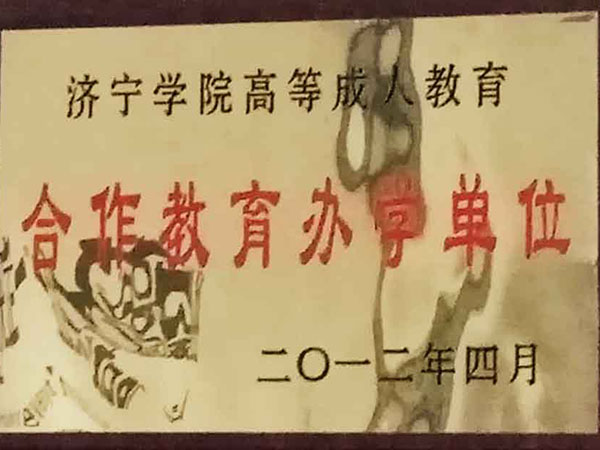 济宁学院高等成人教育
合作教育办学单位
二〇一二年四月